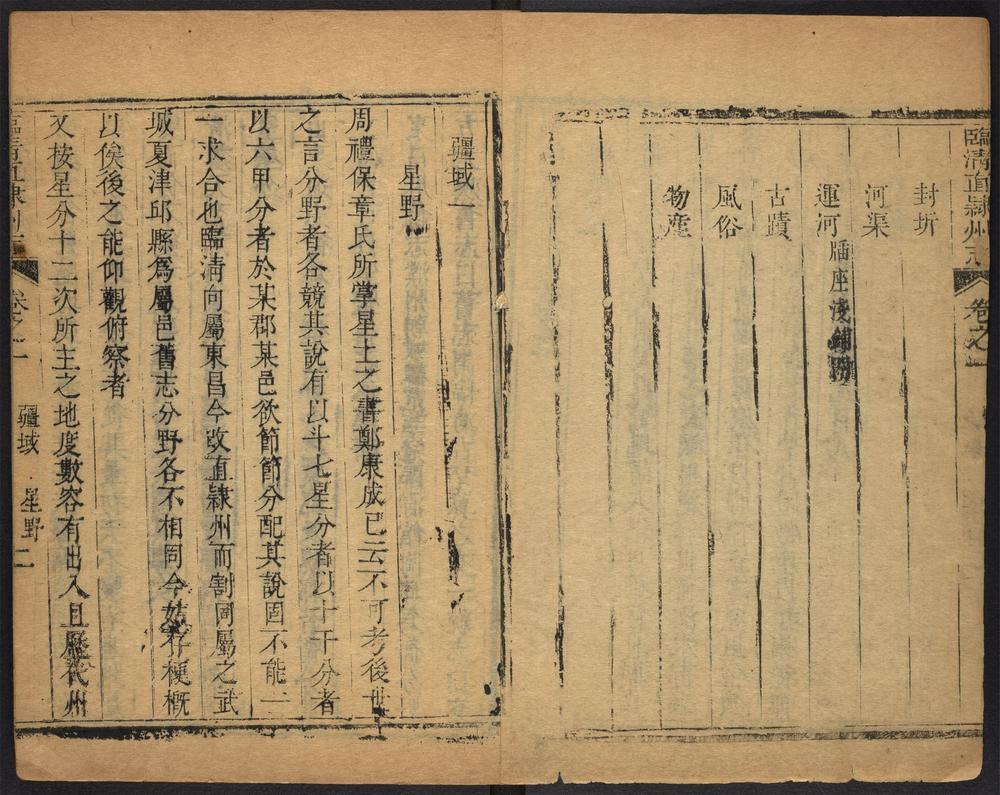 臨清直隸州志 卷之一
封圻
河渠
運河 牐座 淺鋪附
古蹟
風俗
物産
疆域一
星野
周禮保章氏所掌星土之書鄭康成已云不可考後世
之言分野者各競其說有以斗七星分者以十干分者
以六甲分者於某郡某邑欲節節分配其說固不能一
一求合也臨清向屬東昌今改直隸州而割同屬之武
城夏津邱縣為屬邑舊志分野各不相同今姑存梗概
以俟後之能仰觀俯察者
又按星分十二次所主之地度數容有出入且歷代州
臨清直隸州志 卷之一 疆域 星野 二